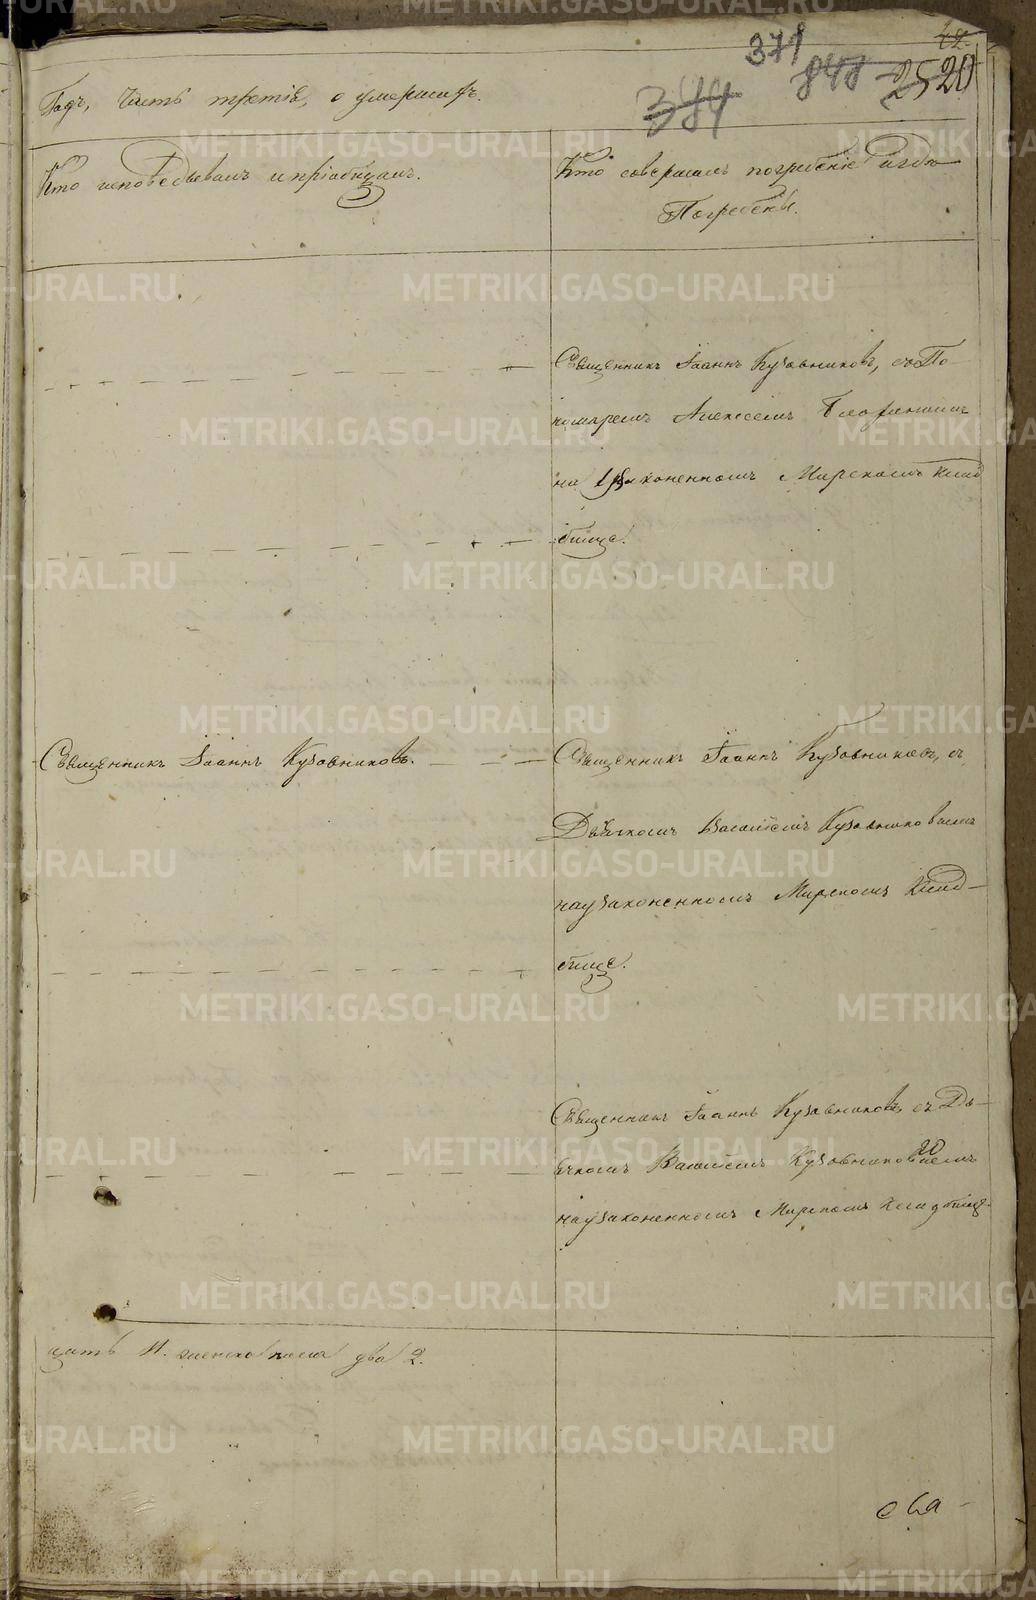 42
371
384
848
25 20
Годъ, Часть третія, о умершихъ.
Кто исповедывалъ и пріобщалъ.
Кто совершалъ погребеніе и где
Погребены.
Священникъ Іоаннъ Кузовниковъ, съ По
номаремъ Алексеемъ
на узаконенномъ Мирскомъ клад
бище.
Священникъ Іоаннъ Кузовниковъ.
Священникъ Іоаннъ Кузовниковъ, съ
Дьячкомъ Василіемъ Кузовниковымъ
на узаконенномъ Мирскомъ Клад-
бище.
Священникъ Іоаннъ Кузовниковъ, съ Дь-
ячкомъ Василіемъ Кузовниковымъ
20
на узаконенномъ Мирскомъ кладбище.
цать 11. женска пола два 2.
METRIKI.GASO-URAL.RU